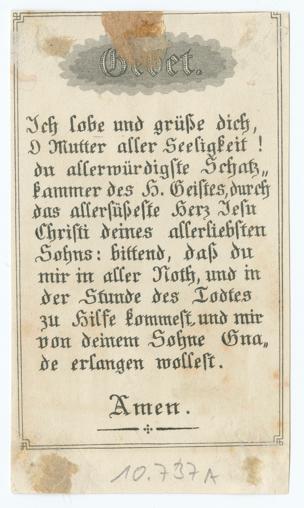 Gebet.
Ich lobe und grüße dich,
O Mutter aller Seeligkeit !
du allerwürdigste Schatz„
kammer des H. Geistes, durch
das allersüßeste Herz Jesu
Christi deines allerliebsten
Sohns: bittend, daß du
mir in aller Noth, und in
der Stunde des Todtes
zu Hilfe kommest, und mir
von deinem Sohne Gna„
de erlangen wollest.
Amen.
10.737A